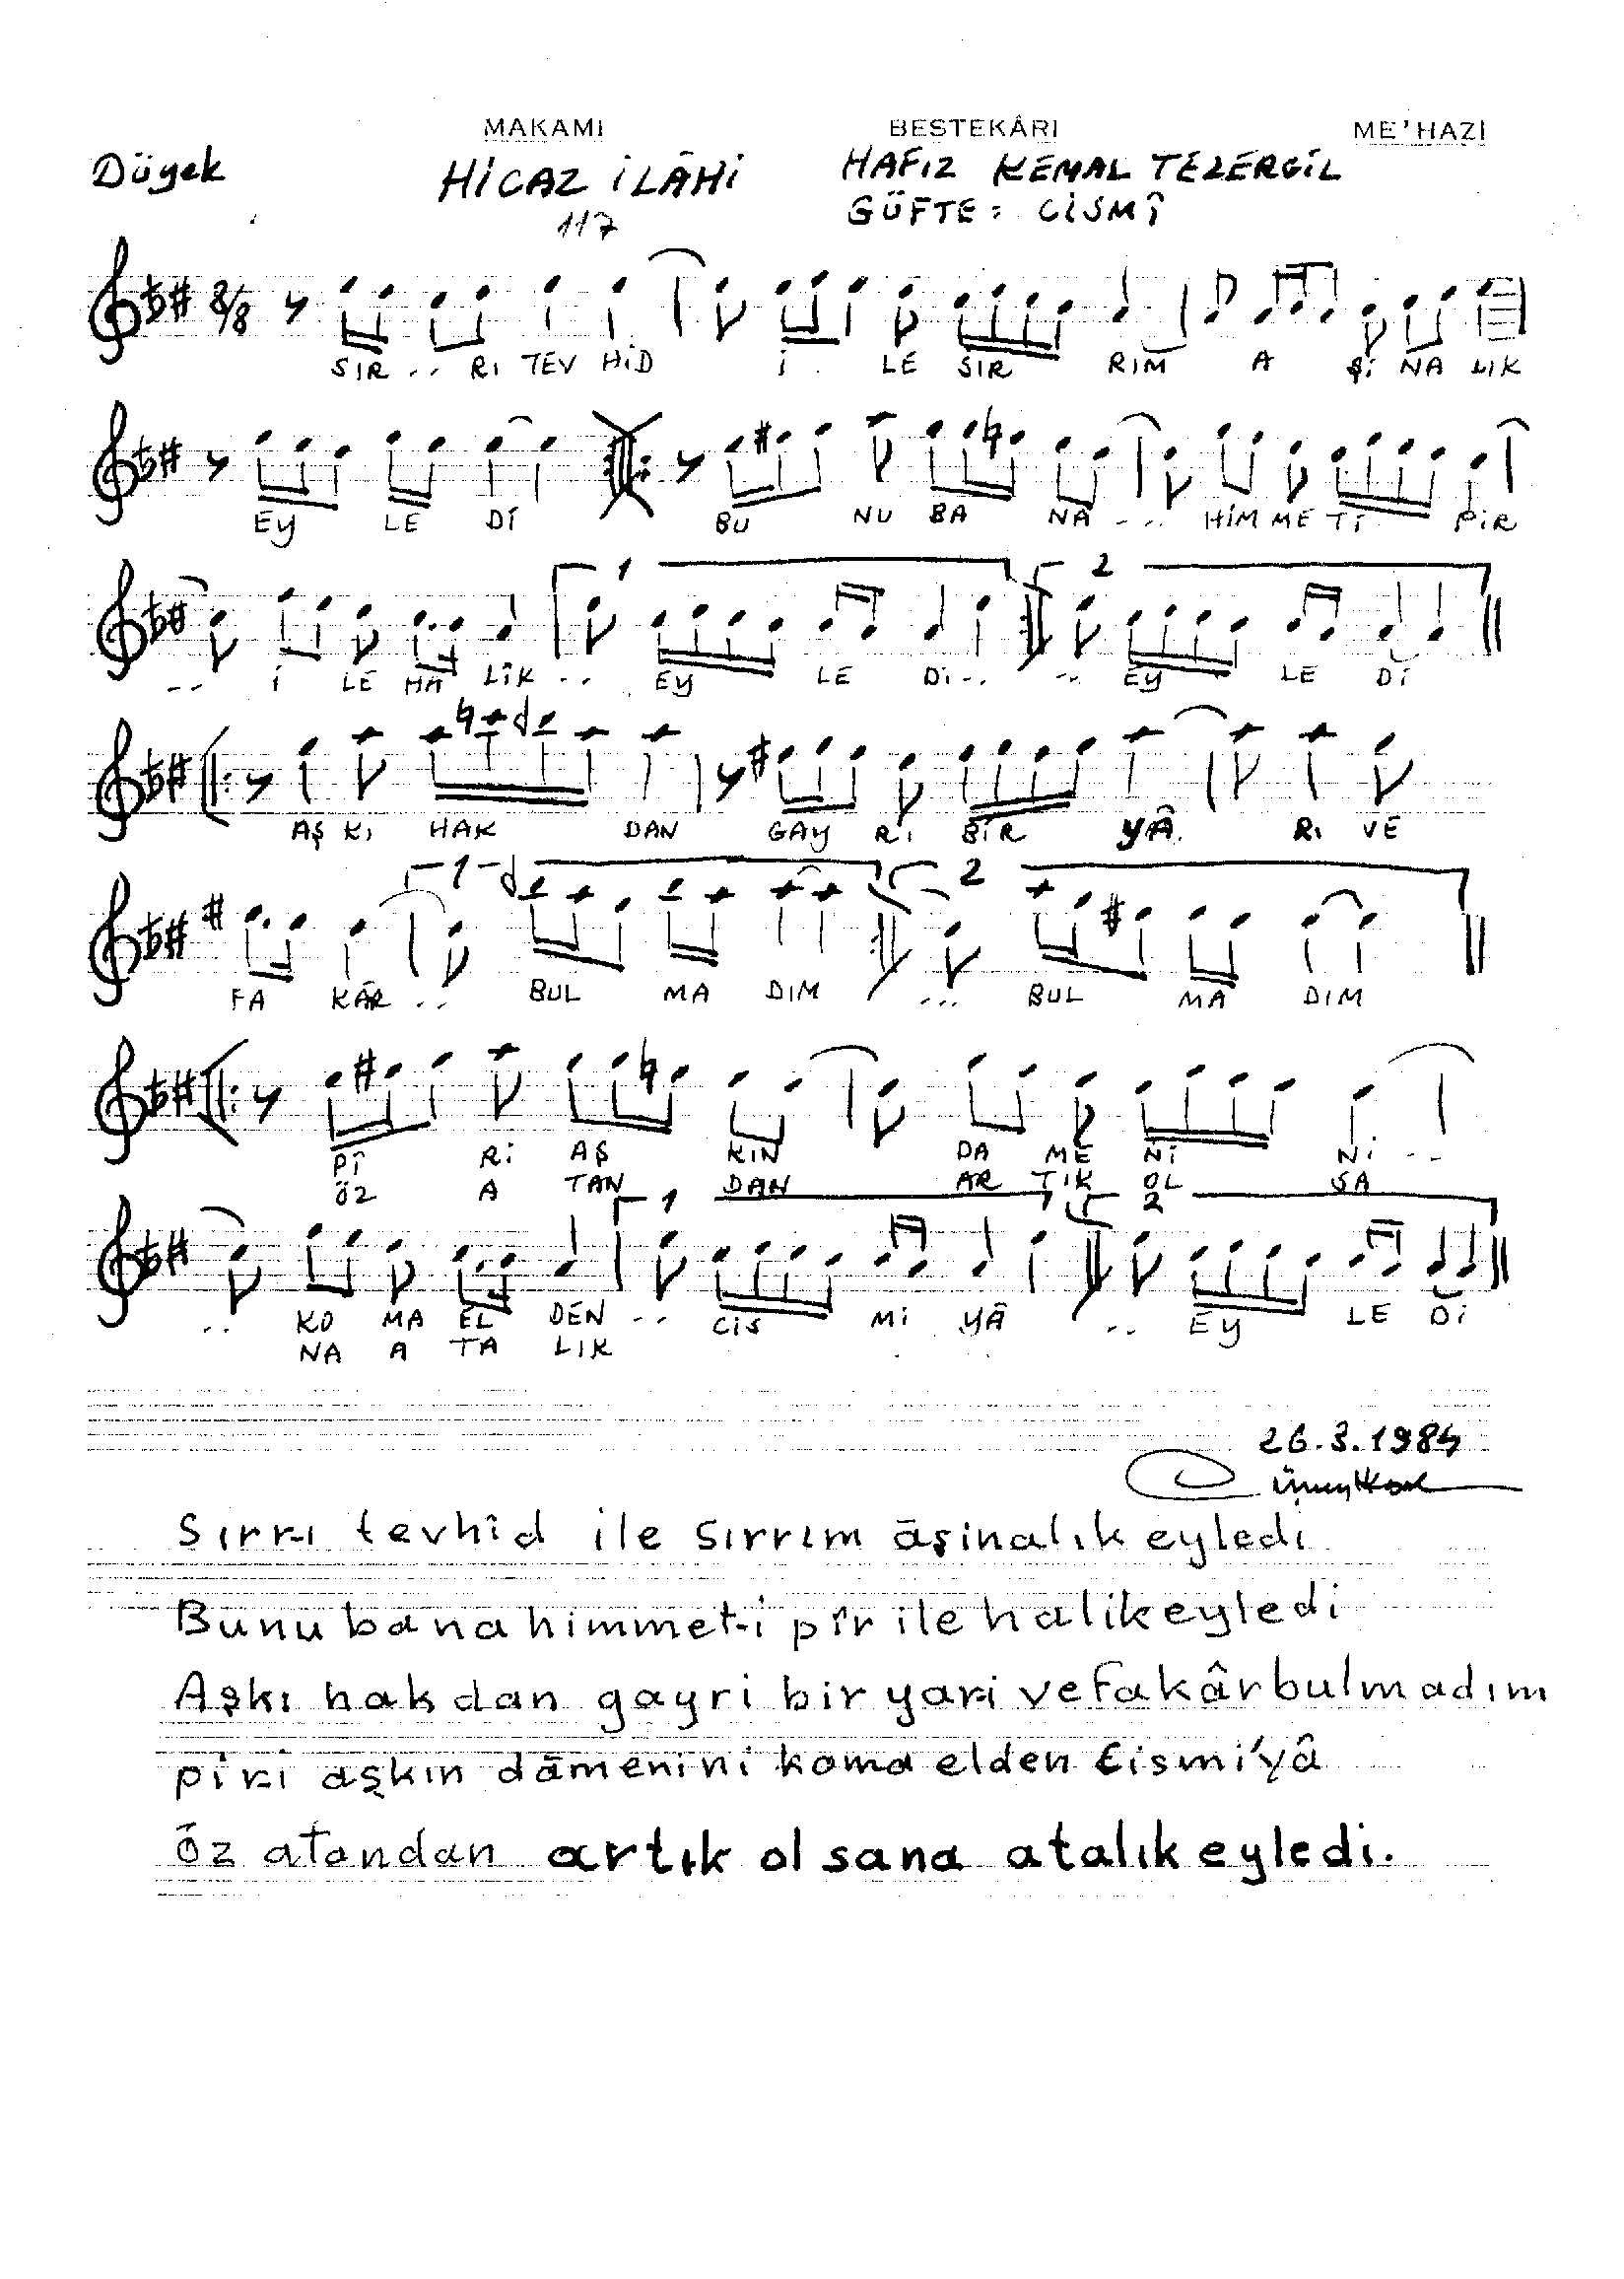 MAKAMI BESTEKÂRI ME'HAZİ
Düyek HİCAZ İLÂHİ HAFIZ KEMAL TEZERGİL
117 GÜFTE: CİSMÎ
8/8
SIR .. RI TEV HİD İ . LE SIR RIM A Şİ NA LIK
EY LE Dİ BU NU BA NA --.. HİM ME Tİ PİR
1 2
-- İ LE HA LİK -- EY LE Dİ -- -- EY LE Dİ
AŞ KI HAK DAN GAY RI BİR YÂ RI VE
1 2
FA KÂR -- BUL MA DIM --- BUL MA DIM
PÎ Rİ AŞ KIN DA ME Nİ Nİ --
ÖZ A TAN DAN AR TIK OL SA
1 2
-- KO MA EL DEN -- CİS Mİ YÂ -- EY LE Dİ
NA A TA LIK
26.3.1984
Sırr-ı tevhîd ile sırrım âşinalık eyledi
Bunu bana himmet-i pîr ile halik eyledi
Aşkı hak dan gayri bir yar-i vefakâr bulmadım
pir-i aşkın dâmenini koma elden Cismi'yâ
Öz atandan artık ol sana atalık eyledi.